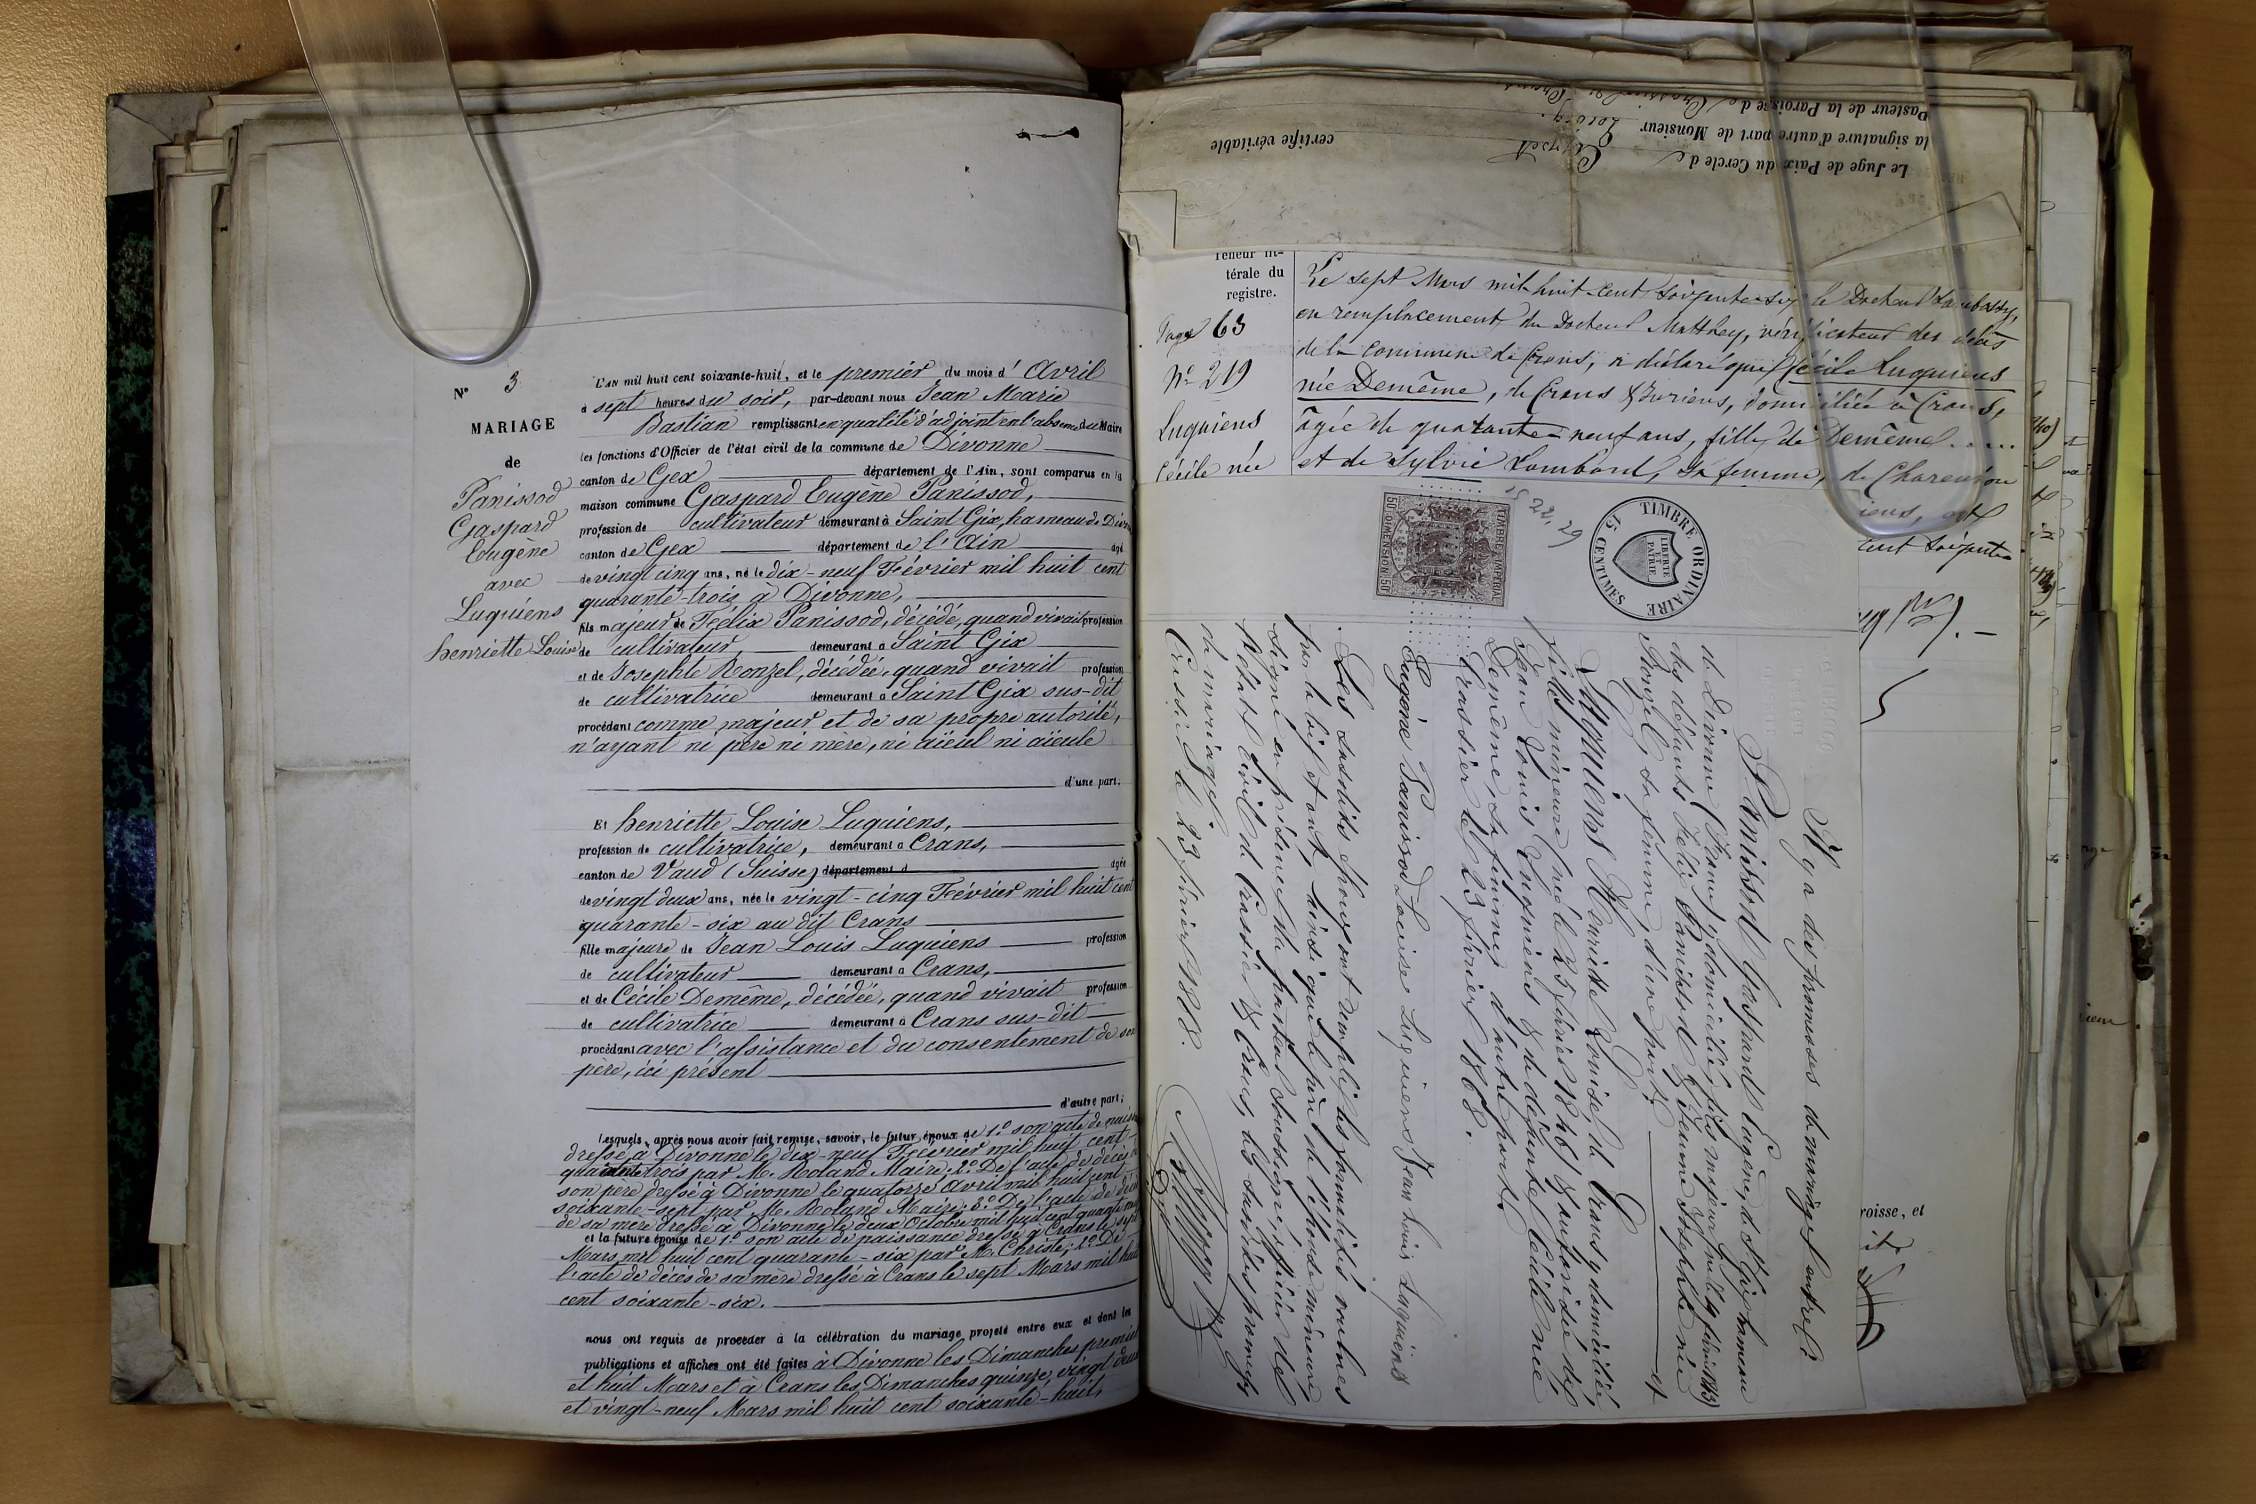 N° 3
MARIAGE
de
Panissod
Gaspard
Eugène
avec
Luquiens
henriette Louise
L'AN mil huit cent soixante-huit, et le premier du mois d' Avril
à sept heures du soir, par-devant nous Jean Marie
Bastian remplissant en qualité d'adjoint en l'absence du Maire
les fonctions d'Officier de l'état civil de la commune de Divonne
canton de Gex département de l'Ain, sont comparus en la
maison commune Gaspard Eugène Panissod,
profession de cultivateur demeurant à Saint Gix, hameau de
canton de Gex département de l'Ain agé
de vingt cinq ans, né le dix-neuf Février mil huit cent
quarante-trois à Divonne,
fils majeur de Félix Panissod, décédé, quand vivait profession
de cultivateur, demeurant à Saint Gix
et de Josephte Ronzel, décédée, quand vivait profession
de cultivatrice demeurant à Saint Gix sus-dit
procédant comme majeur et de sa propre autorité,
n'ayant ni père ni mère, ni aïeul ni aïeule
d'une part.
Et henriette Louise Luquiens,
profession de cultivatrice, demeurant à Crans,
canton de Vaud (Suisse) département d agée
de vingt deux ans, née le vingt-cinq Février mil huit cent
quarante-six au dit Crans
fille majeure de Jean Louis Luquiens profession
de cultivateur demeurant à Crans,
et de Cécile Demême, décédée, quand vivait profession
de cultivatrice demeurant à Crans sus-dit
procédant avec l'assistance et du consentement de son
père, ici présent
d'autre part;
Lesquels, après nous avoir fait remise, savoir, le futur époux de 1° son acte de
dressé à Divonne le dix-neuf Février mil huit cent
quarante trois par M. Roland Maire; 2° De l'acte de décès
son père dressé à Divonne le quatorze Avril mil huit cent
soixante-sept par M. Roland Maire; 3° De l'acte de
de sa mère dressé à Divonne le deux Octobre mil huit cent
et la future épouse de 1° son acte de naissance dressé à Crans le sept
Mars mil huit cent quarante-six par M. Christe; 2° De
l'acte de décès de sa mère dressé à Crans le sept Mars mil huit
cent soixante-six.
nous ont requis de procéder à la célébration du mariage projeté entre eux et dont les
publications et affiches ont été faites à Divonne les Dimanches premier
et huit Mars et à Crans les Dimanches quinze, vingt deux
et vingt-neuf Mars mil huit cent soixante-huit,
Le Juge de Paix du Cercle de
la signature d'autre part de Monsieur
Pasteur de la Paroisse de
certifie véritable
térale du
registre.
Page 63
N° 219
Luquiens
Cécile née
Le sept Mars mil huit cent soixante-six, le Docteur
en remplacement du Docteur Matthey, vérificateur des décès
de la commune de Crans, a déclaré que Cécile Luquiens
née Demême, de Crans & domiciliée à Crans,
âgée de quarante-neuf ans, fille de Demême
et de Sylvie Lombard, sa femme, de
15 22, 29
TIMBRE IMPÉRIAL
DIMENSION
50 50
TIMBRE ORDINAIRE
LIBERTÉ ET PATRIE
15 CENTIMES
Il y a des promesses de mariage entre:
Panissod Gaspard Eugène, de St Gix hameau
de Divonne (France) y domicilié, fils majeur
des défunts Félix Panissod & Jeanne Josephte née
Ronzel, sa femme, d'une part, et
Luquiens Henriette Louise, de Crans y domiciliée
fille mineure (née le 25 février 1846) & autorisée de
Jean Louis Luquiens & de défunte Cécile née
Demême, sa femme, d'autre part.
Crassier le 23 février 1868.
Eugène Panissod Louise Luquiens Jean Louis Luquiens
Les susdits époux ont rempli les formalités voulues
par la loi et ont, ainsi que le père de l'épouse mineure
signé en présence du pasteur soussigné, officier de
l'état civil de Crassier & Crans, les susdites promesses
de mariage.
Crassier le 23 février 1868.
roisse, et